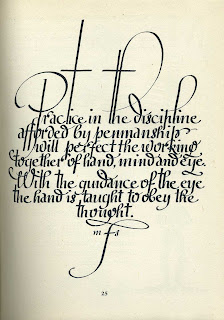 Practice in the discipline
afforded by penmanship
will perfect the working
together of hand, mind and eye.
With the guidance of the eye
the hand is taught to obey the
thought.
m—s
25